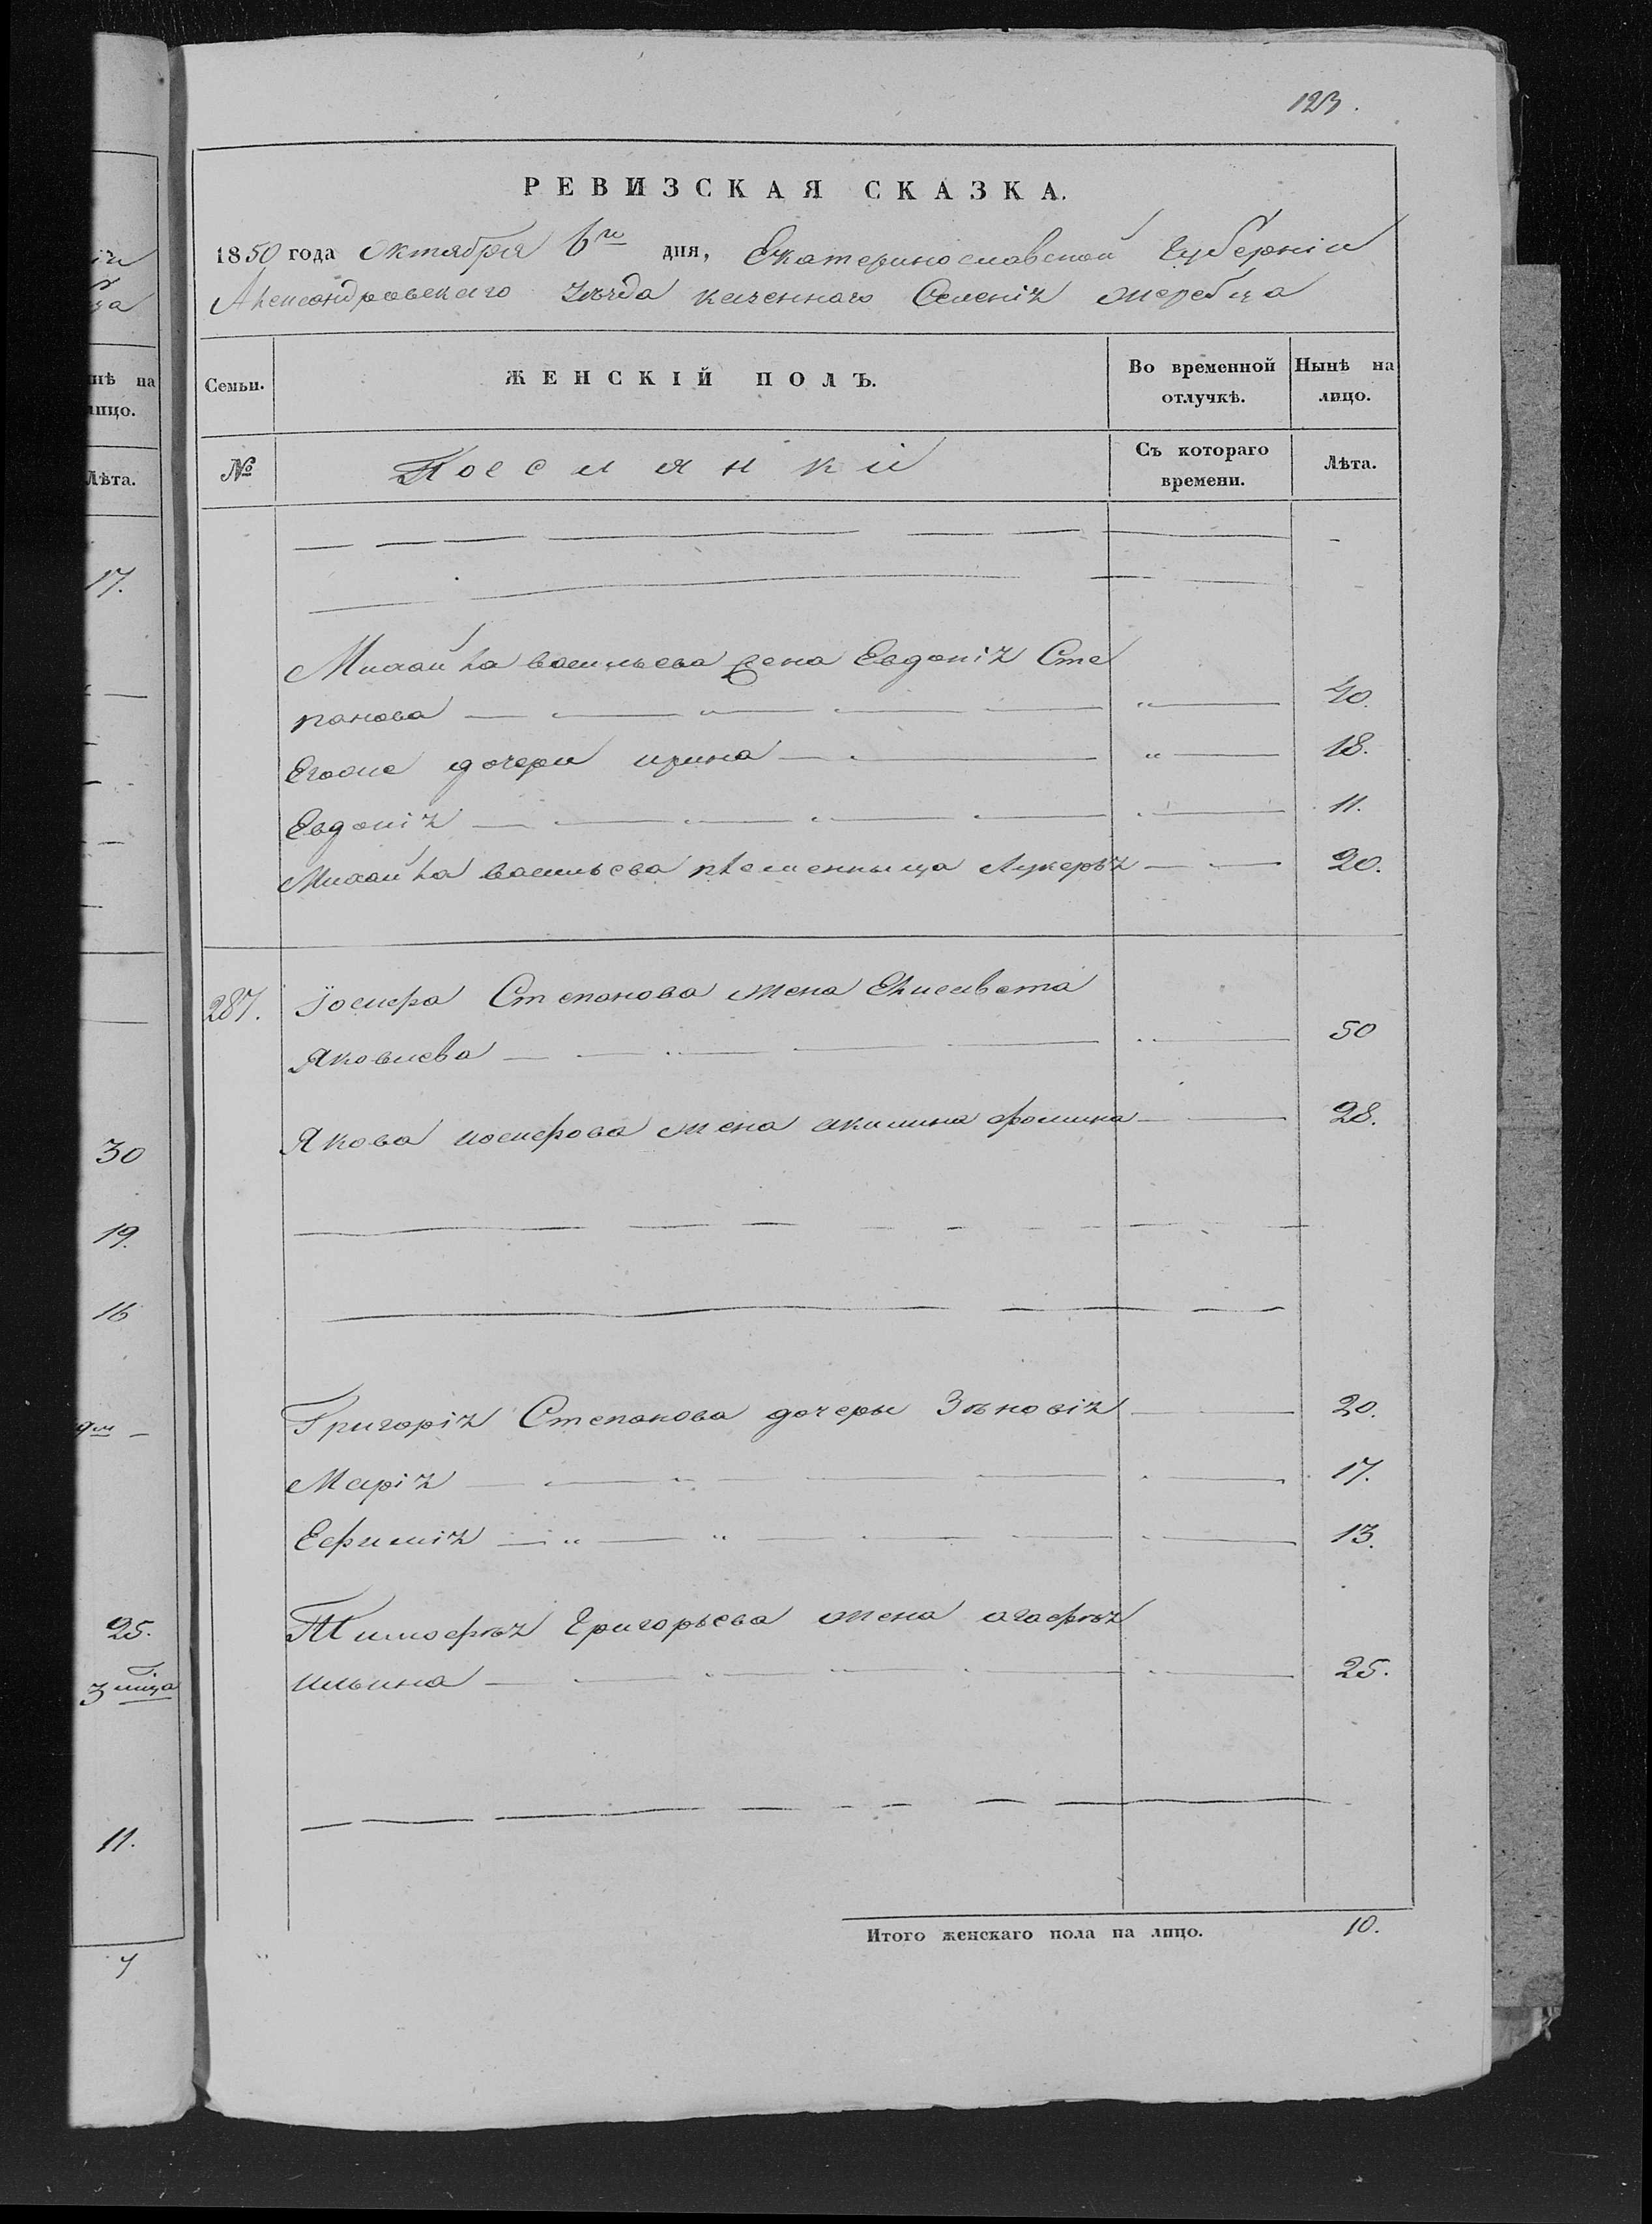 123.
РЕВИЗСКАЯ СКАЗКА.
1850 года Октября 6го дня, Екатеринославской Губерніи
Александровскаго уѣзда казеннаго Селенія Жеребца
Семьи. ЖЕНСКІЙ ПОЛЪ. Во временной отлучкѣ. Нынѣ на лицо.
№ Поселянки Съ котораго времени. Лѣта.
Михайла васильева жена Евдокія Сте
панова 40.
Егоже дочери ирина 18.
Евдокія 11.
Михайла васильева племенныца Лукерѣя 20.
287. Іосифа Степанова жена Елисавета
Яковлева 50
Якова иосифова жена акилина фомина 28.
Григорія Степанова дочеры Зѣновія 20.
Марія 17.
Ефимія 13.
Тимофѣя Григорьева жена агафѣя
ильина 25.
Итого женскаго пола на лицо. 10.
нѣ на
лицо.
Лѣта.
17.
30
19.
16
25.
3
11.